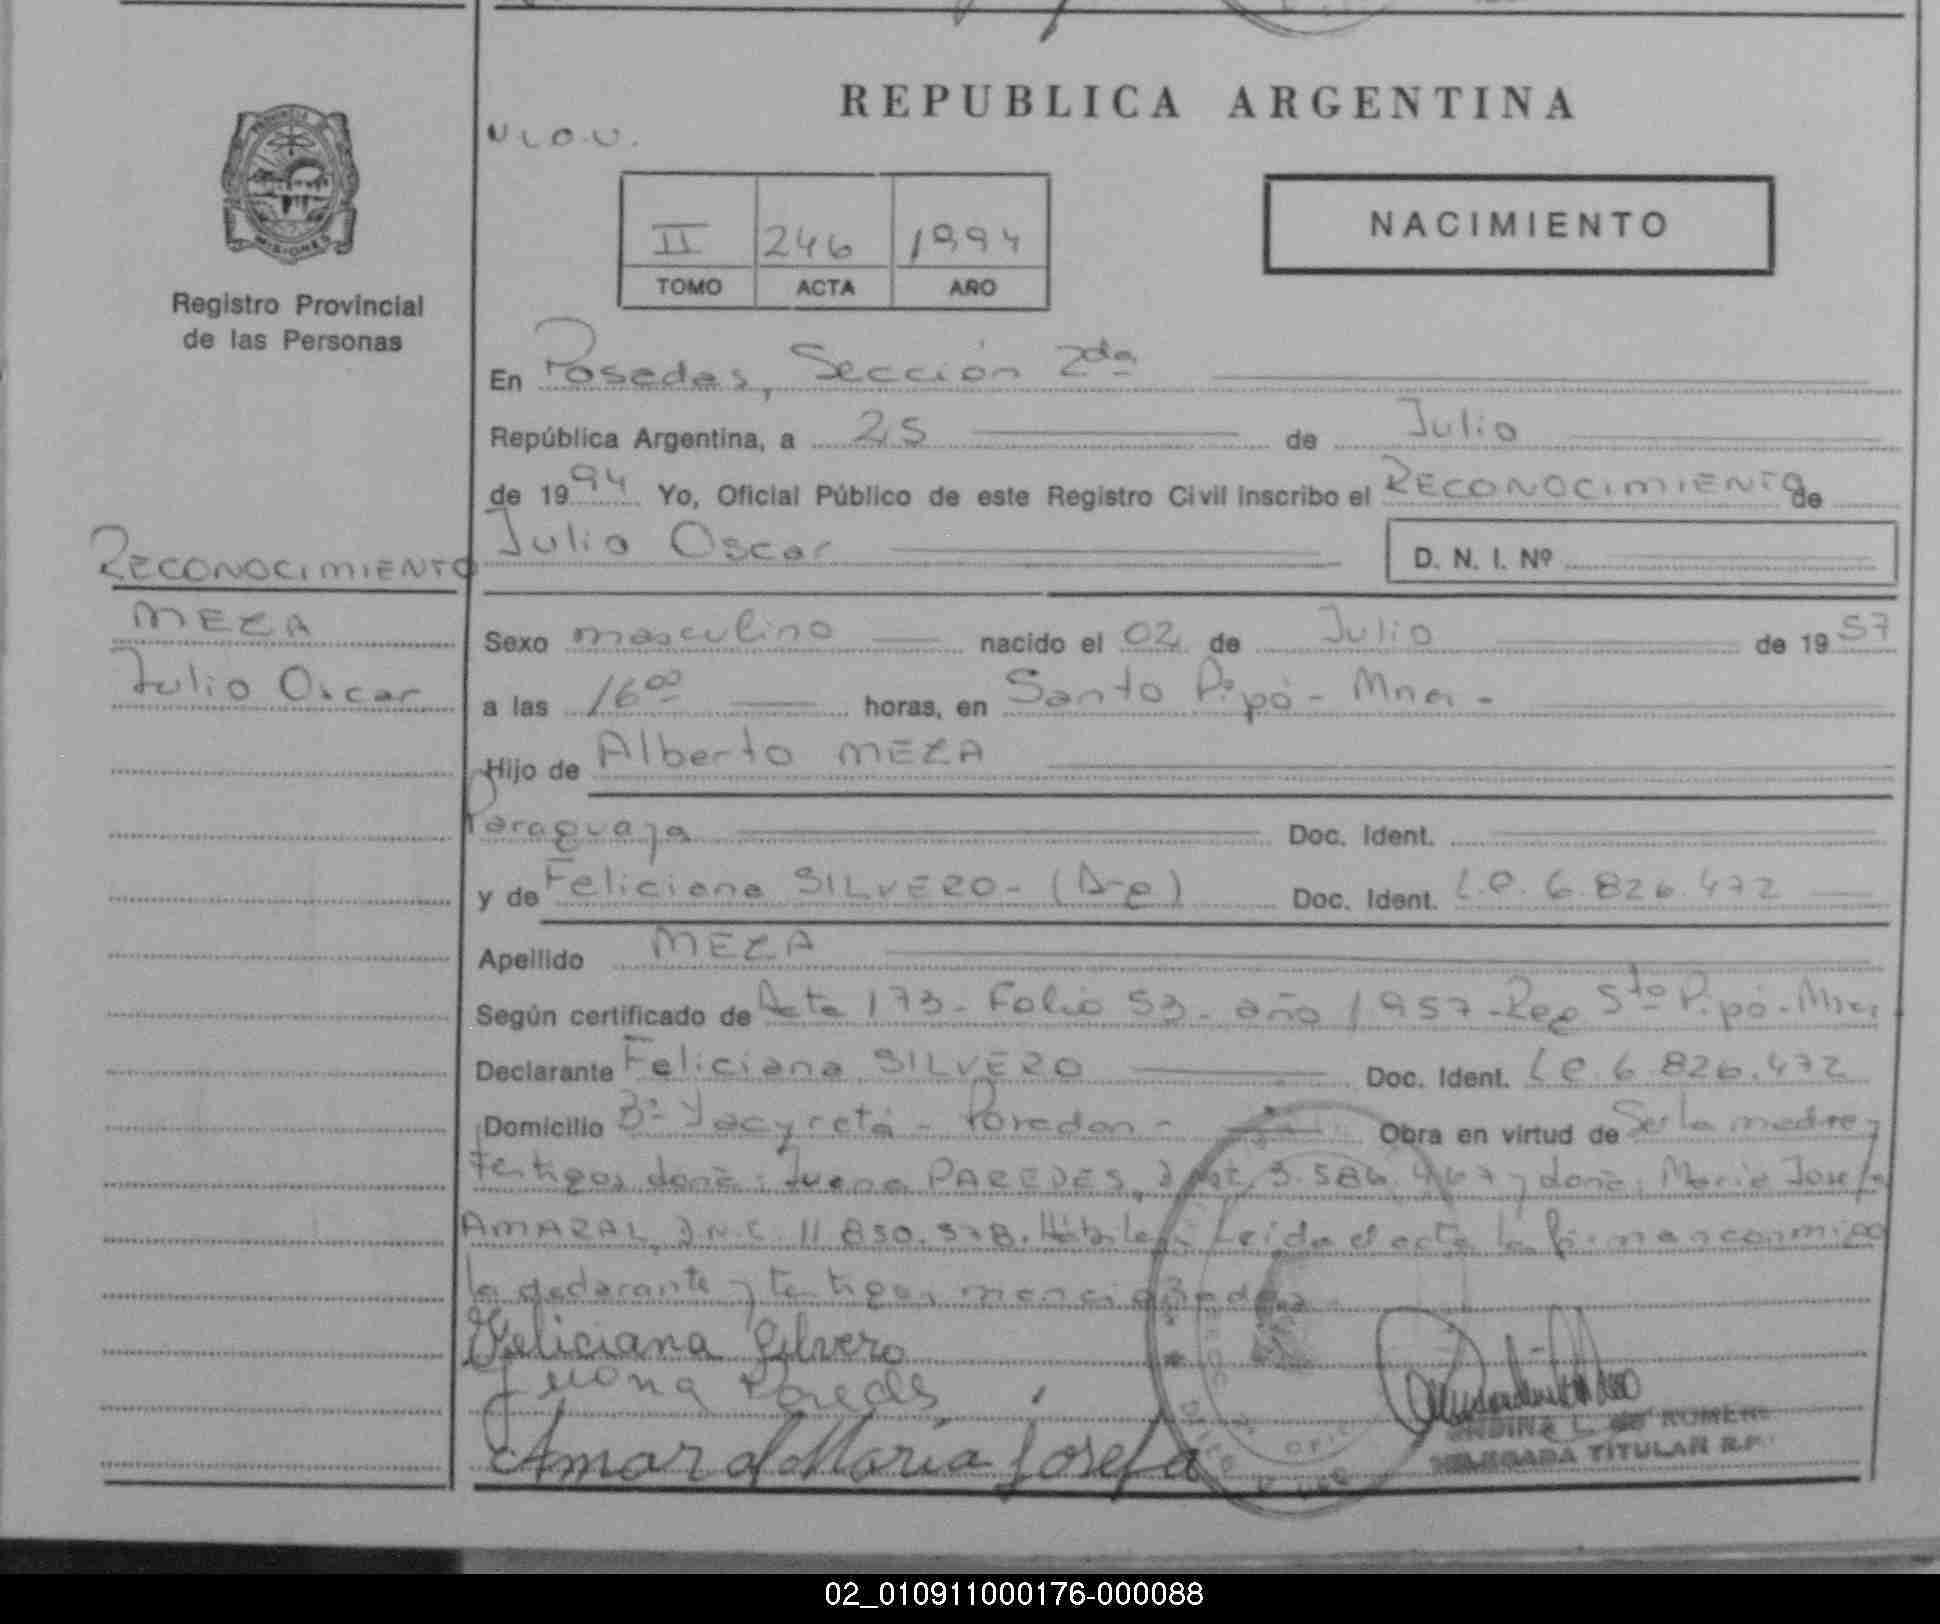 REPUBLICA ARGENTINA
PROVINCIA DE
MISIONES
Registro Provincial
de las Personas
NACIMIENTO
II 246 1994
TOMO ACTA AÑO
En Posadas, Sección 2da
República Argentina, a 25 de Julio
de 1994 Yo, Oficial Público de este Registro Civil inscribo el RECONOCIMIENTO de
Julio Oscar D. N. I. Nº
RECONOCIMIENTO
MEZA
Julio Oscar
Sexo masculino nacido el 02 de Julio de 1957
a las 16 00 horas, en Santo Pipó - Mnes -
Hijo de Alberto MEZA
Paraguaya Doc. Ident.
y de Feliciana SILVERO - (Arg) Doc. Ident. L.C. 6.826.472
Apellido MEZA
Según certificado de Acta 173 - Folio 53 - año 1957 - Reg Sto Pipó - Mnes
Declarante Feliciana SILVERO Doc. Ident. L.C. 6.826.472
Domicilio Bº Yacyretá - Posadas - Obra en virtud de Ser la madre y
testigos doña: Juana PAREDES, 3.586.467 y doña: María Josefa
AMARAL, D.N.I. 11.850.578. Hábiles. Leida el acta la firman conmigo
la declarante y testigos mencionados.
Feliciana Silvero
Juana Paredes
Amaral María Josefa
DELEGADA TITULAR R.P.
02_010911000176-000088